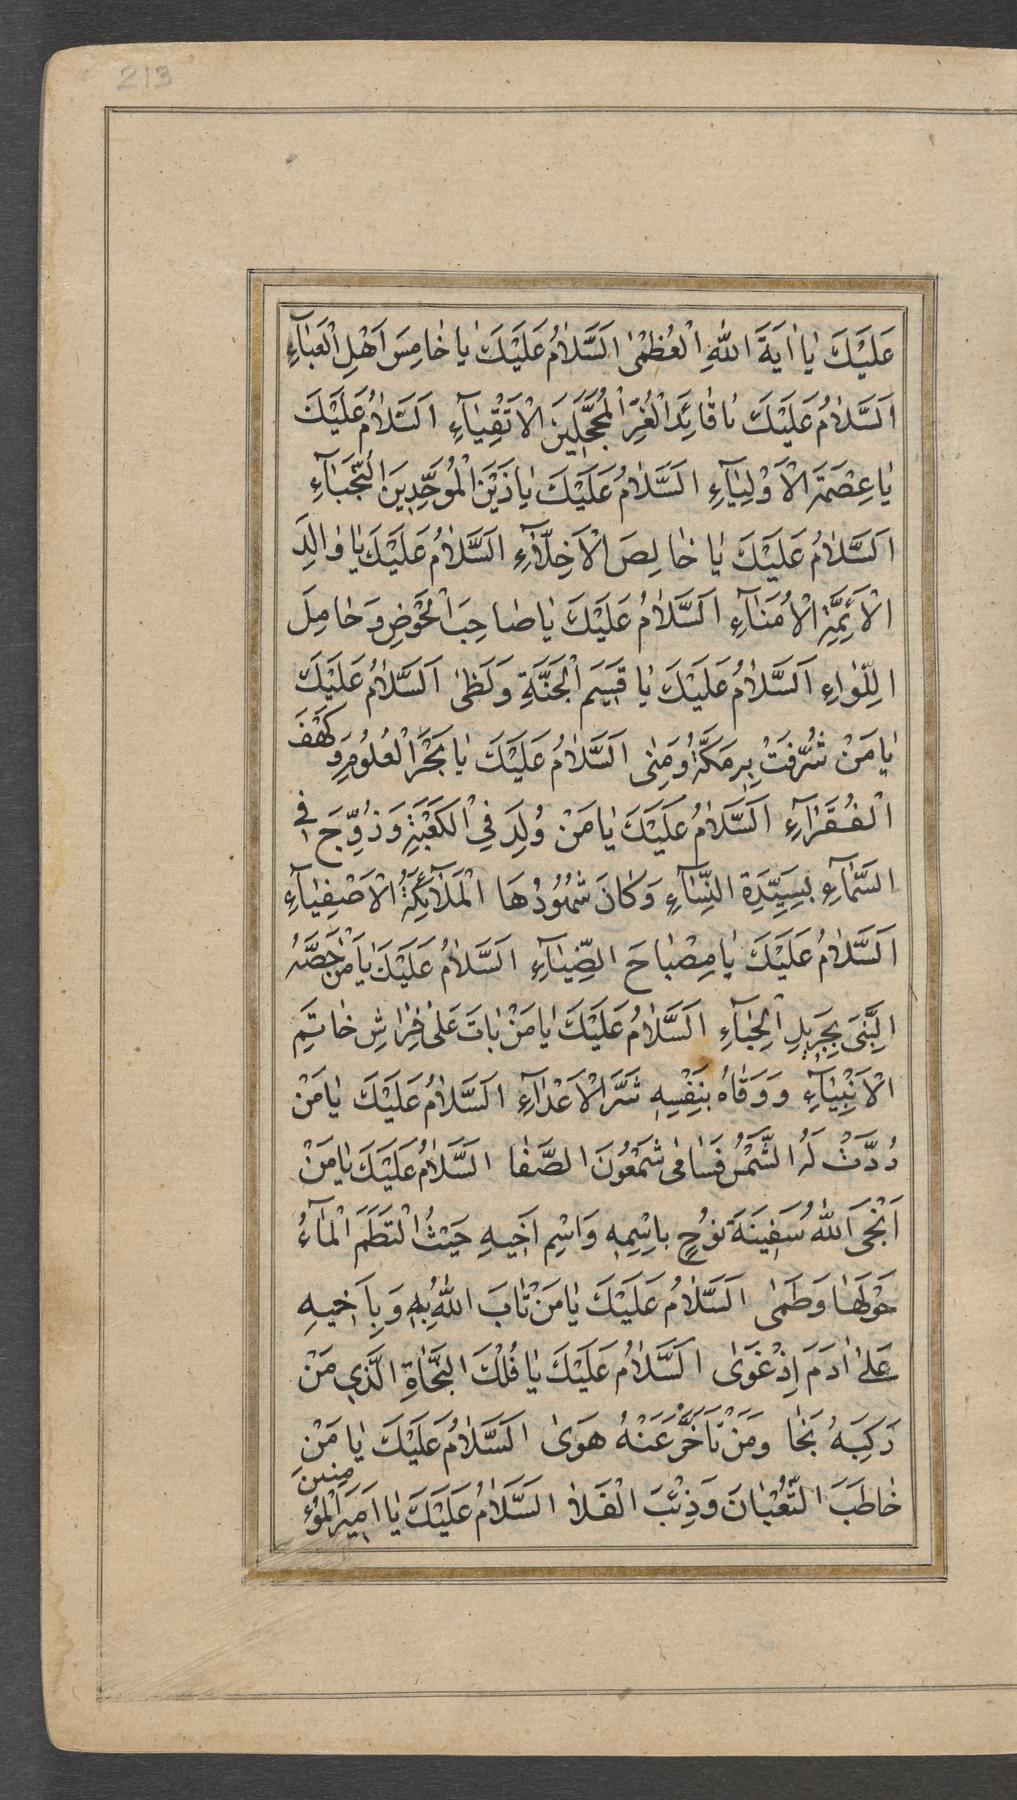 213
عَلَيْكَ يٰا اٰيَةَ اللّٰهِ الْعُظْمٰى اَلسَّلٰامُ عَلَيْكَ يٰا خٰامِسَ اَهْلِ الْعَبٰآءِ
اَلسَّلٰامُ عَلَيْكَ يٰا قٰائِدَ الْغُرِّ الْمُحَجَّلِينَ الْاَتْقِيٰآءِ اَلسَّلٰامُ عَلَيْكَ
يٰا عِصْمَةَ الْاَوْلِيٰآءِ اَلسَّلٰامُ عَلَيْكَ يٰا زَيْنَ الْمُوَحِّدِينَ النُّجَبٰآءِ
اَلسَّلٰامُ عَلَيْكَ يٰا خٰالِصَ الْاَخِلّٰآءِ اَلسَّلٰامُ عَلَيْكَ يٰا وٰالِدَ
الْاَئِمَّةِ الْاُمَنٰآءِ اَلسَّلٰامُ عَلَيْكَ يٰا صٰاحِبَ الْحَوْضِ وَحٰامِلَ
اللِّوٰاءِ اَلسَّلٰامُ عَلَيْكَ يٰا قَسِيمَ الْجَنَّةِ وَلَظٰى اَلسَّلٰامُ عَلَيْكَ
يٰا مَنْ شُرِّفَتْ بِهِ مَكَّةُ وَمِنٰى اَلسَّلٰامُ عَلَيْكَ يٰا بَحْرَ الْعُلُومِ وَكَهْفَ
الْفُقَرٰآءِ اَلسَّلٰامُ عَلَيْكَ يٰا مَنْ وُلِدَ فِي الْكَعْبَةِ وَزُوِّجَ فِي
السَّمٰآءِ بِسَيِّدَةِ النِّسٰآءِ وَكٰانَ شُهُودُهَا الْمَلٰآئِكَةُ الْاَصْفِيٰآءِ
اَلسَّلٰامُ عَلَيْكَ يٰا مِصْبٰاحَ الضِّيٰآءِ اَلسَّلٰامُ عَلَيْكَ يٰا مَنْ خَصَّهُ
النَّبِىُّ بِجَزِيلِ الْحِبٰآءِ اَلسَّلٰامُ عَلَيْكَ يٰا مَنْ بٰاتَ عَلٰى فِرٰاشِ خٰاتَمِ
الْاَنْبِيٰآءِ وَوَقٰاهُ بِنَفْسِهِ شَرَّ الْاَعْدٰآءِ اَلسَّلٰامُ عَلَيْكَ يٰا مَنْ
رُدَّتْ لَهُ الشَّمْسُ فَسٰامٰى شَمْعُونَ الصَّفٰا اَلسَّلٰامُ عَلَيْكَ يٰا مَنْ
اَنْجَى اللّٰهُ سَفِينَةَ نُوحٍ بِاسْمِهِ وَاسْمِ اَخِيهِ حَيْثُ الْتَطَمَ الْمٰآءُ
حَوْلَهٰا وَطَمٰى اَلسَّلٰامُ عَلَيْكَ يٰا مَنْ تٰابَ اللّٰهُ بِهِ وَبِاَخيهِ
عَلىٰ اٰدَمَ اِذْ غَوٰى اَلسَّلٰامُ عَلَيْكَ يٰا فُلْكَ النَّجٰاةِ الَّذِي مَنْ
رَكِبَهُ نَجٰا وَمَنْ تَاَخَّرَ عَنْهُ هَوٰى اَلسَّلٰامُ عَلَيْكَ يٰا مَنْ
خٰاطَبَ الثُّعْبٰانَ وَذِئْبَ الْفَلٰا اَلسَّلٰامُ عَلَيْكَ يٰا اَمِيرَ الْمُؤْمِنينَ